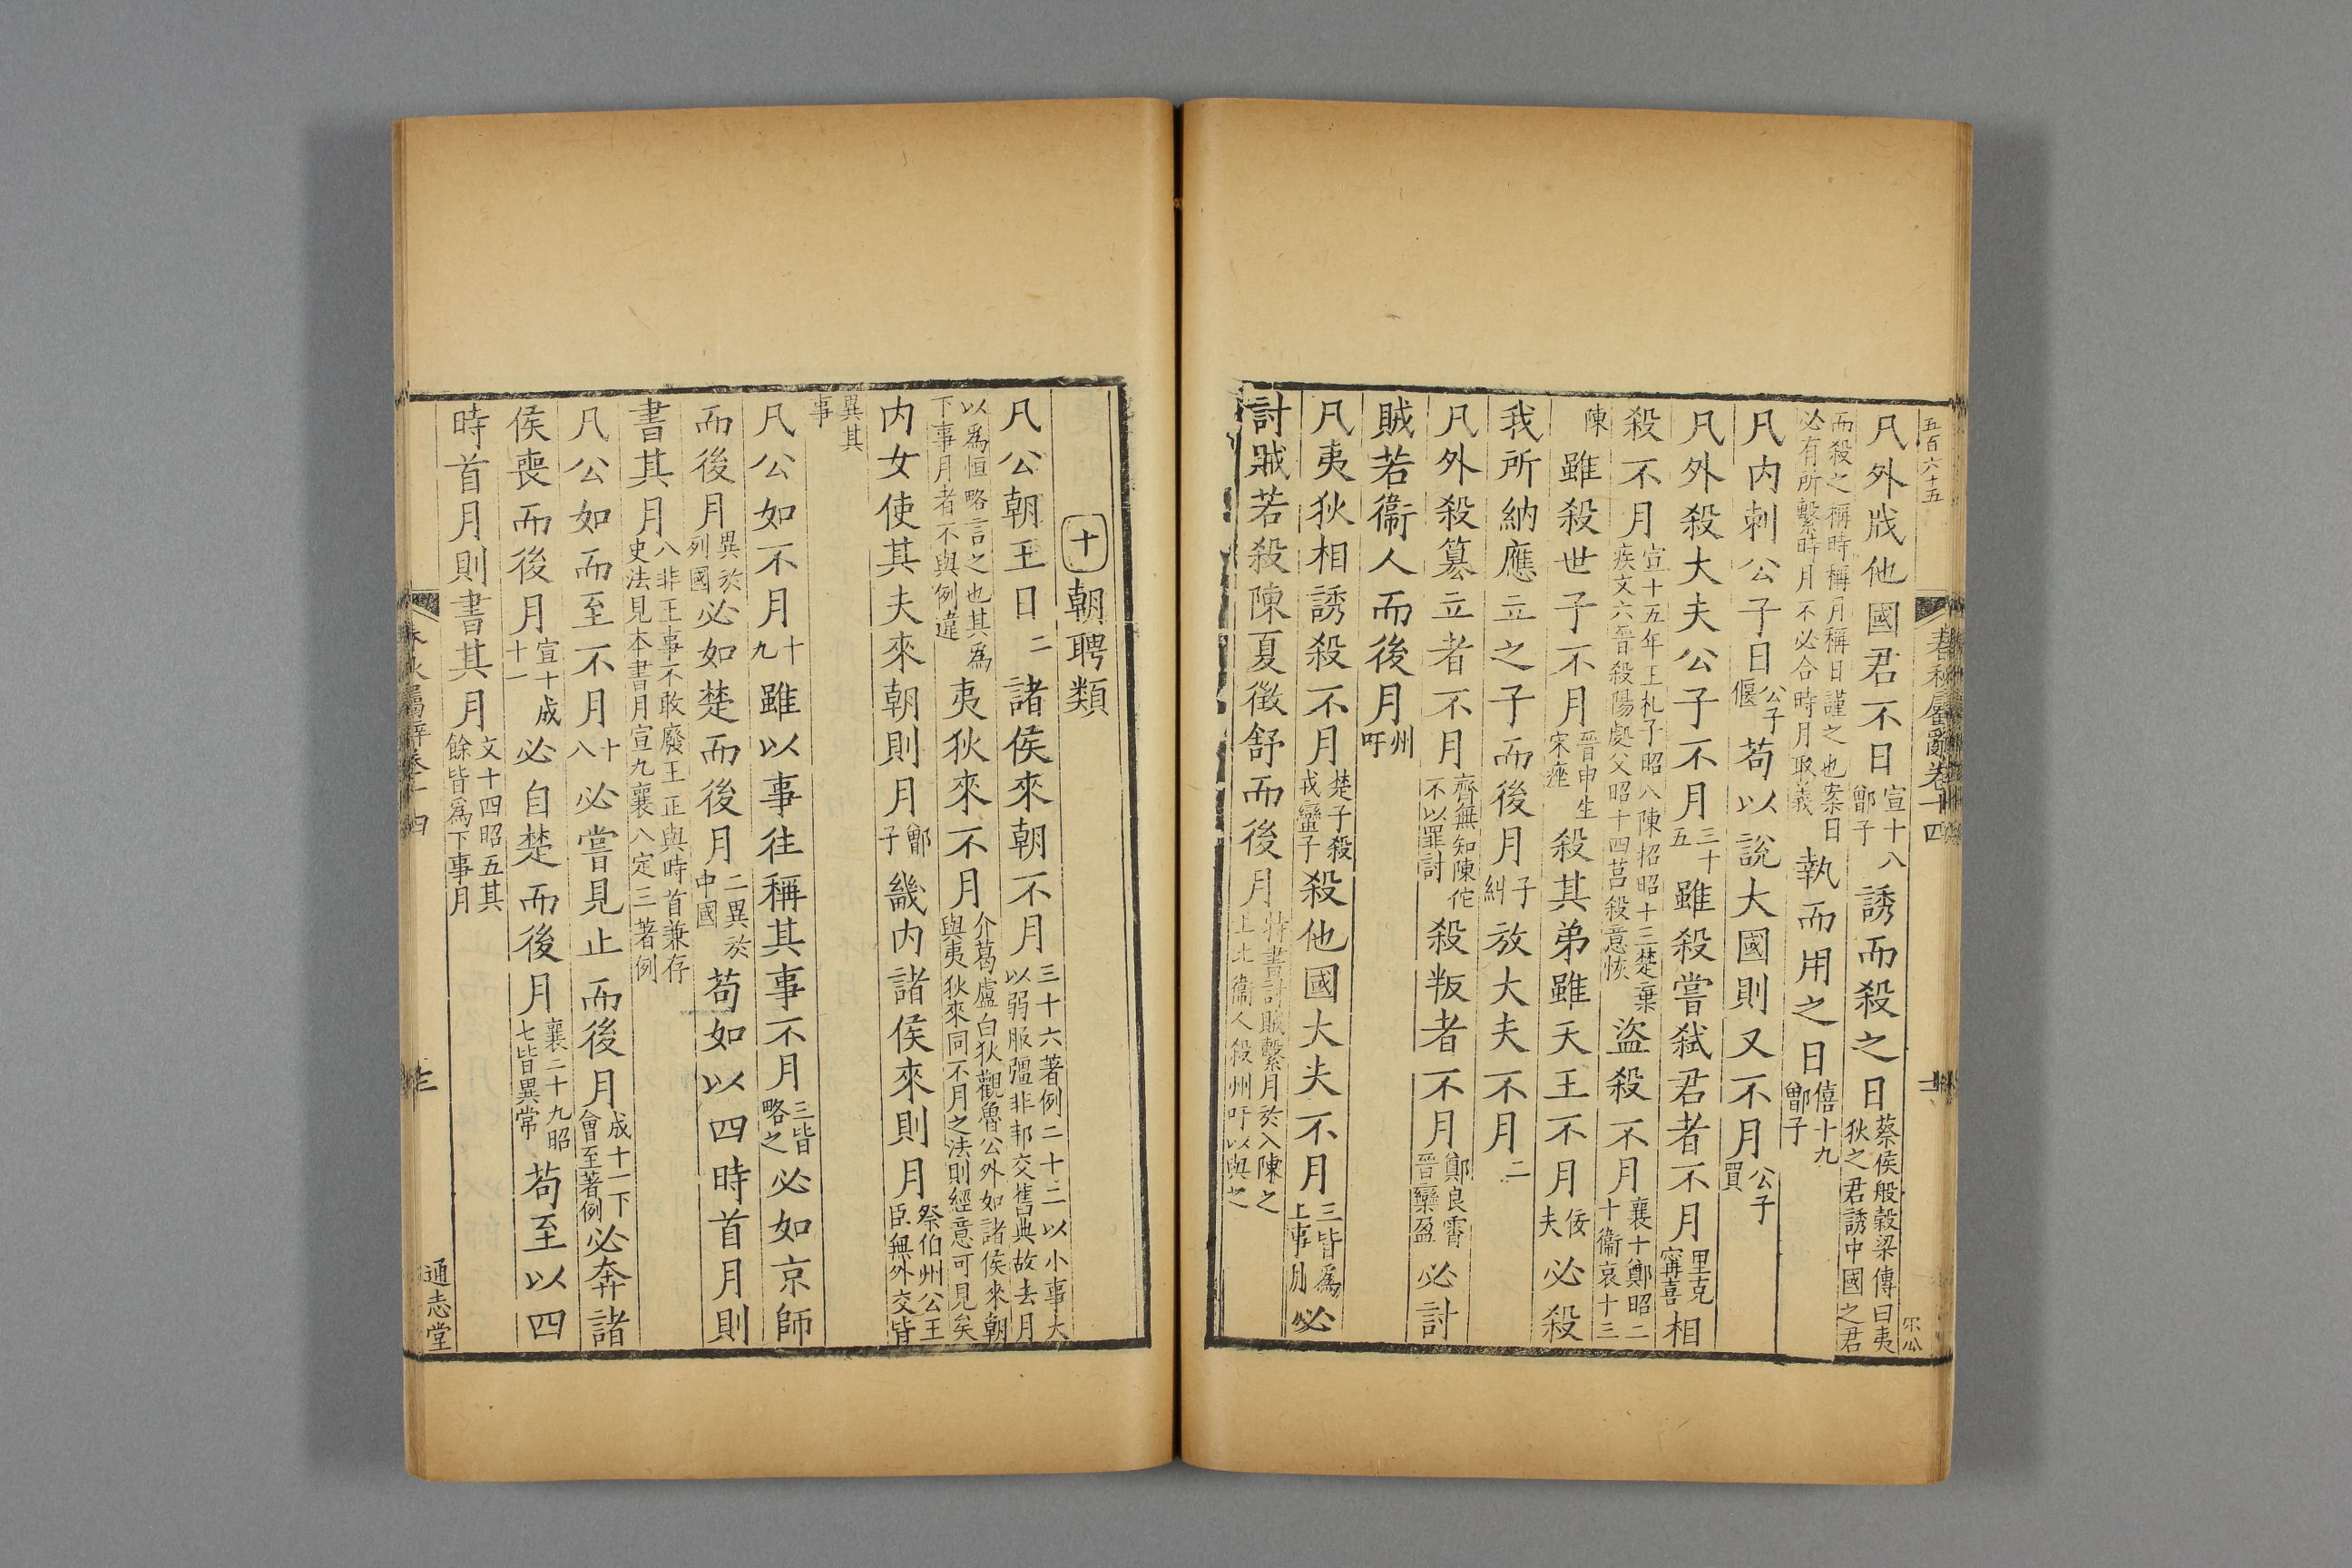 五百六十五
春秋屬辭卷十四
凡外戕他國君不日宣十八鄫子誘而殺之日蔡侯般穀梁傳曰夷狄之君誘中國之君
而殺之稱時稱月稱日謹之也案日必有所繫時月不必合時月取義執而用之日僖十九鄫子
凡內刺公子日公子偃苟以說大國則又不月公子買
凡外殺大夫公子不月三十五雖殺嘗弒君者不月里克甯喜相
殺不月宣十五年王札子昭八陳招昭十三楚棄疾文六晉殺陽處父昭十四莒殺意恢盜殺不月襄十鄭昭二十衞哀十三
陳雖殺世子不月晉申生宋痤殺其弟雖天王不月佞夫必殺
我所納應立之子而後月子糾放大夫不月二
凡外殺篡立者不月齊無知陳佗不以罪討殺叛者不月鄭良霄晉欒盈必討
賊若衞人而後月州吁
凡夷狄相誘殺不月楚子殺戎蠻子殺他國大夫不月三皆爲上事月必
討賊若殺陳夏徵舒而後月特書討賊繫月於入陳之上比衞人殺州吁以與之
十朝聘類
凡公朝王日二諸侯來朝不月三十六著例二十二以小事大以弱服彊非邦交舊典故去月
以爲恒略言之也其爲下事月者不與例違夷狄來不月介葛盧白狄觀魯公外如諸侯來朝與夷狄來同不月之法則經意可見矣
内女使其夫來朝則月鄫子畿内諸侯來則月祭伯州公王臣無外交皆
異其事
凡公如不月十九雖以事往稱其事不月三皆略之必如京師
而後月異於列國必如楚而後月二異於中國苟如以四時首月則
書其月八非王事不敢廢王正與時首兼存史法見本書月宣九襄八定三著例
凡公如而至不月十八必嘗見止而後月成十一下會至著例必奔諸
侯喪而後月宣十成十一必自楚而後月襄二十九昭七皆異常苟至以四
時首月則書其月文十四昭五其餘皆爲下事月
春秋屬辭卷十四
通志堂